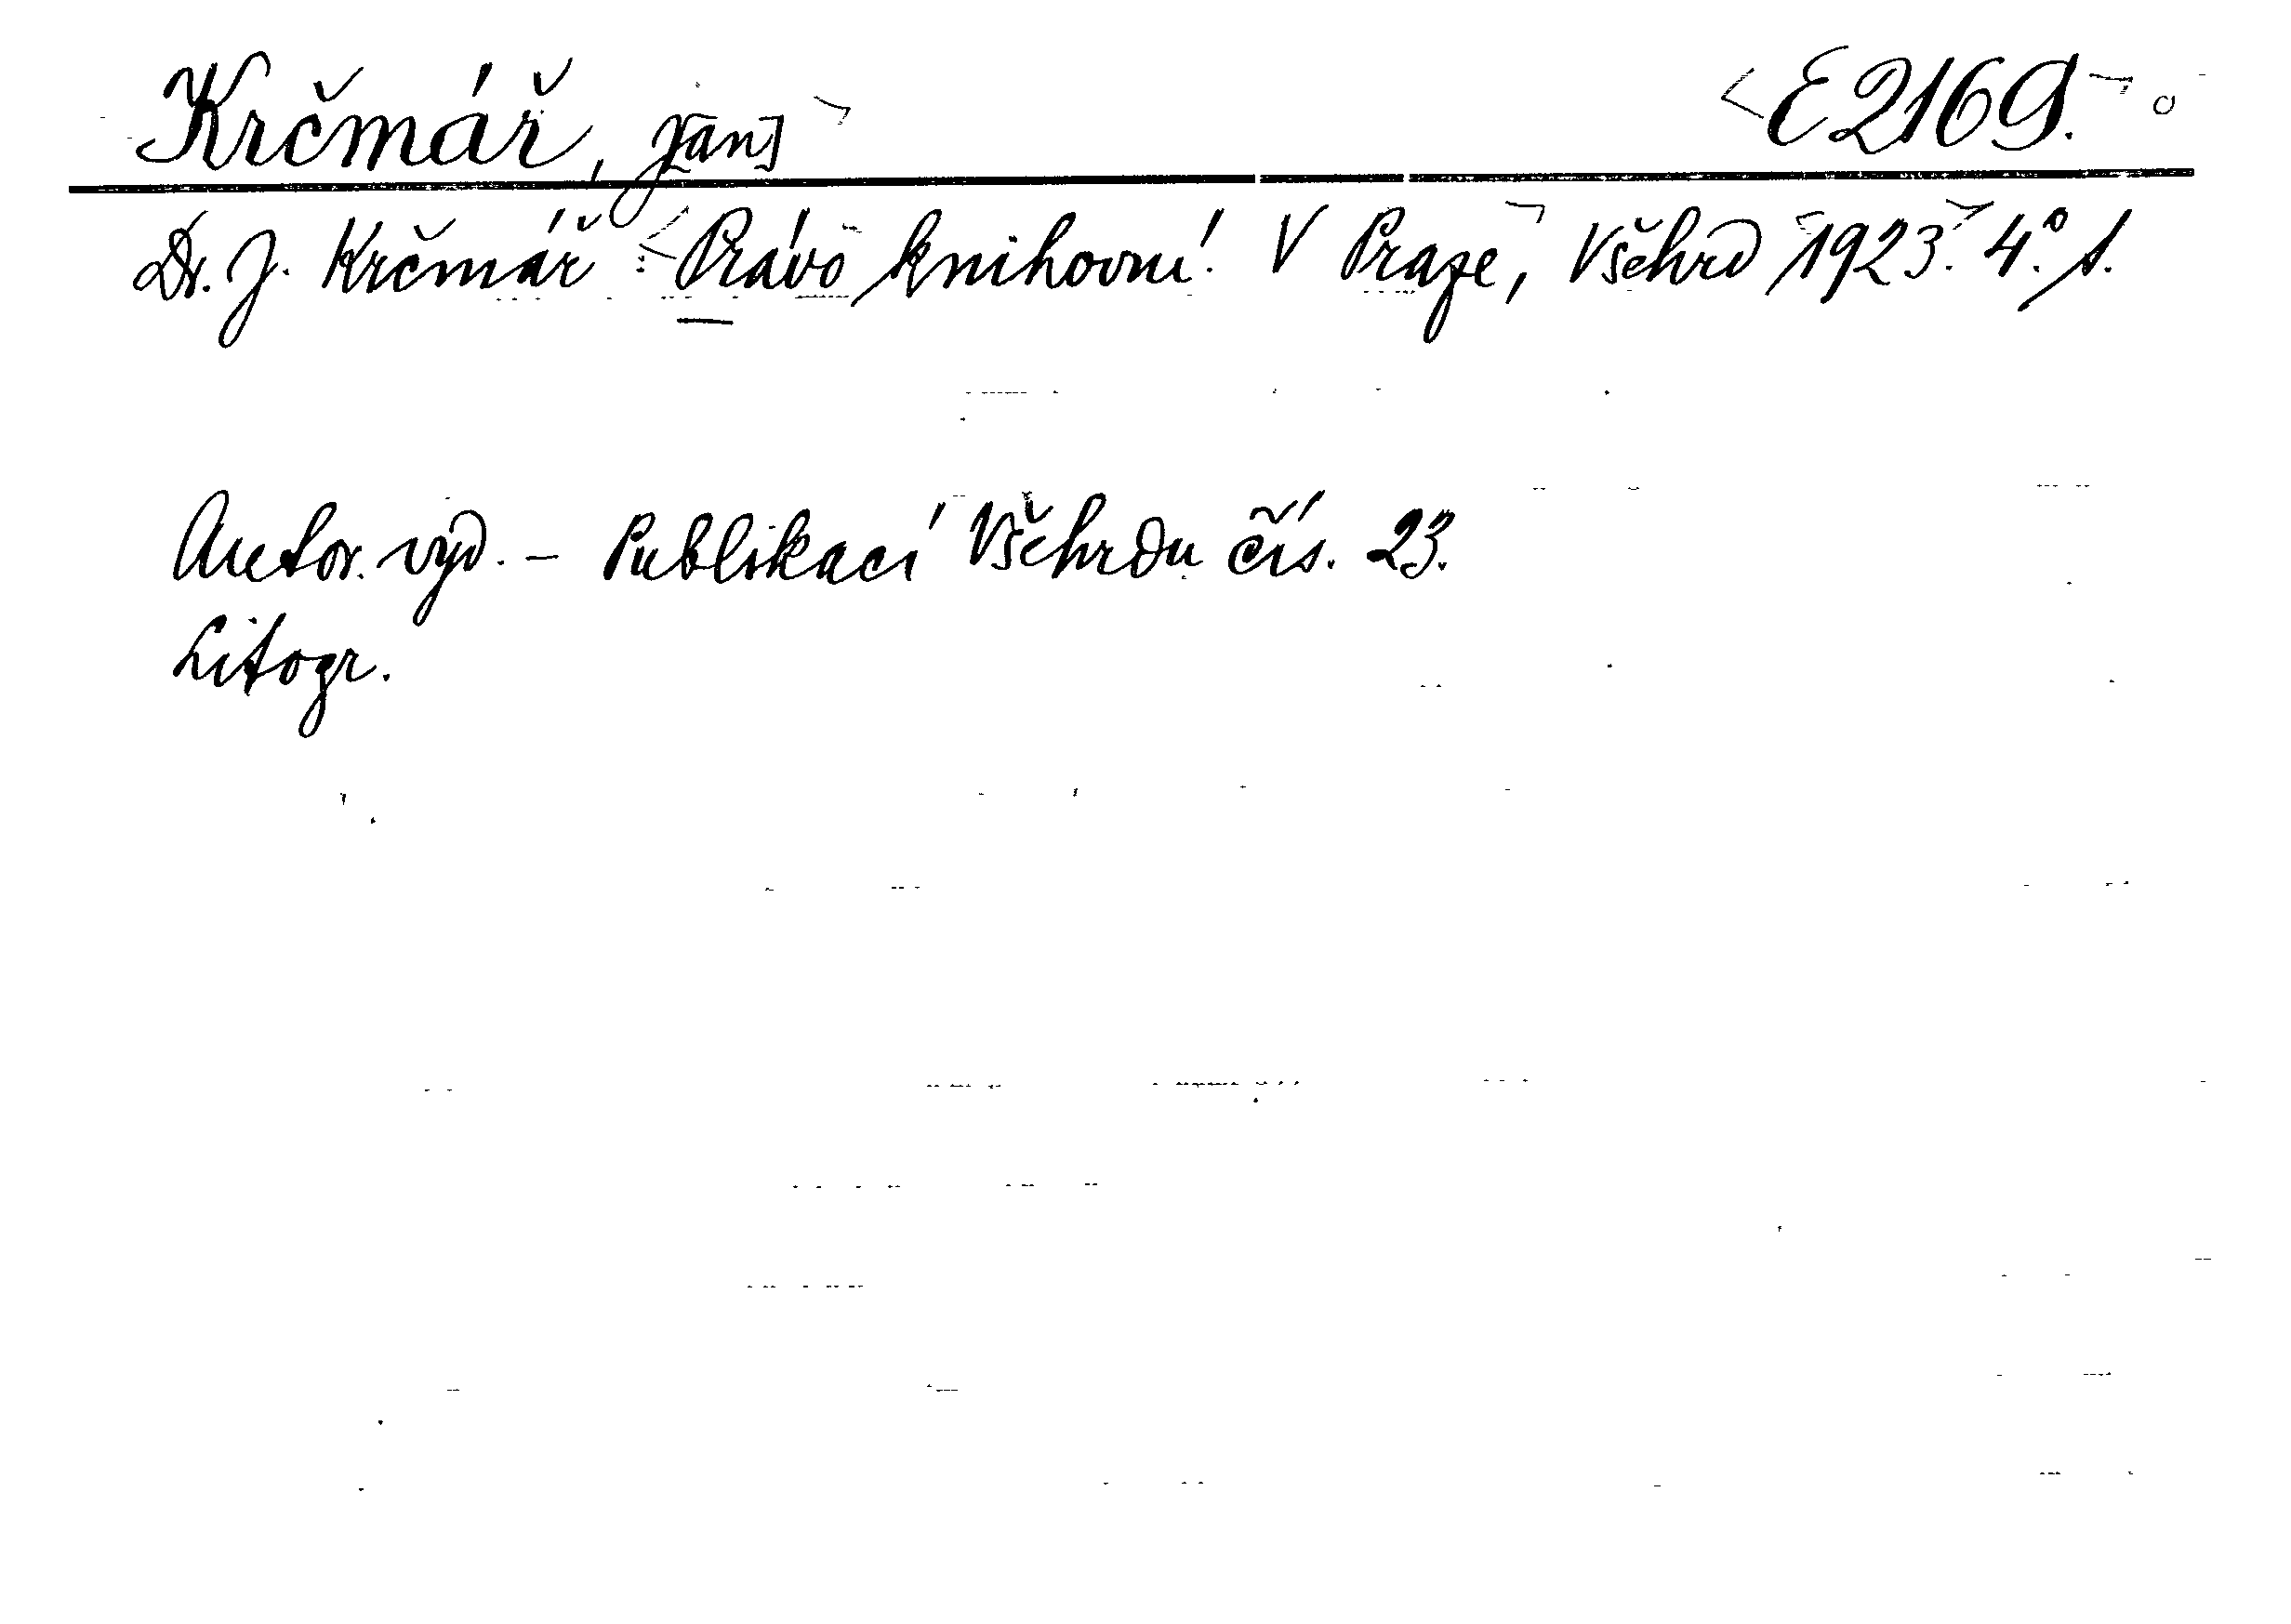 Krčmář, J[an] E 2169.
Dr. J. Krčmář: Právo knihovní. V Praze, Všehrd 1923. 4° s.
Autor. vyd. – Publikací Všehrdu čís. 23.
Litogr.